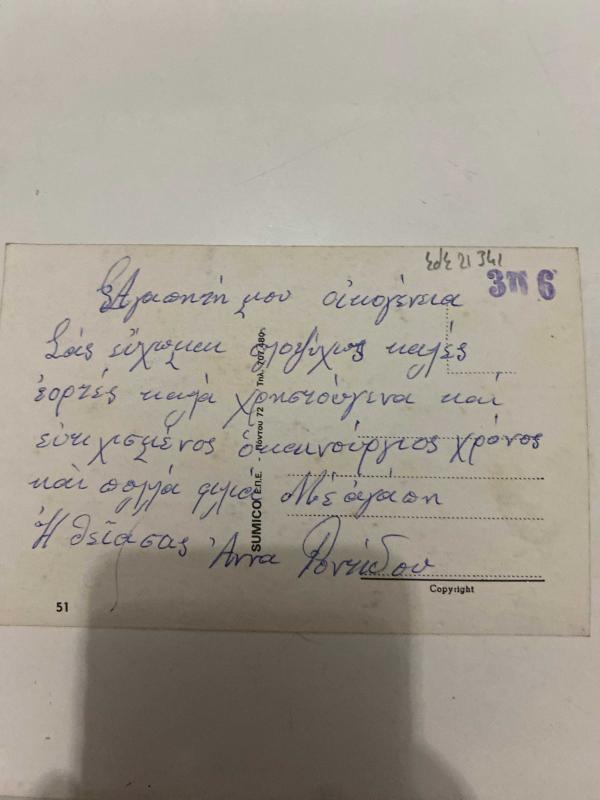 εδε 21 341
3π 6
Αγαπητή μου οικογένεια
Σάς εύχωμαι ψυχως καλές
έορτές καλά χρηστούγενα και
εύτιχισμένος ό καινούργιος χρόνος
καί πολλά φιλιά Μέ άγάπη
Ή θεία σας Άννα
SUMICO Ε.Π.Ε. - Πόντου 72 Τηλ. 707.480
51
Copyright